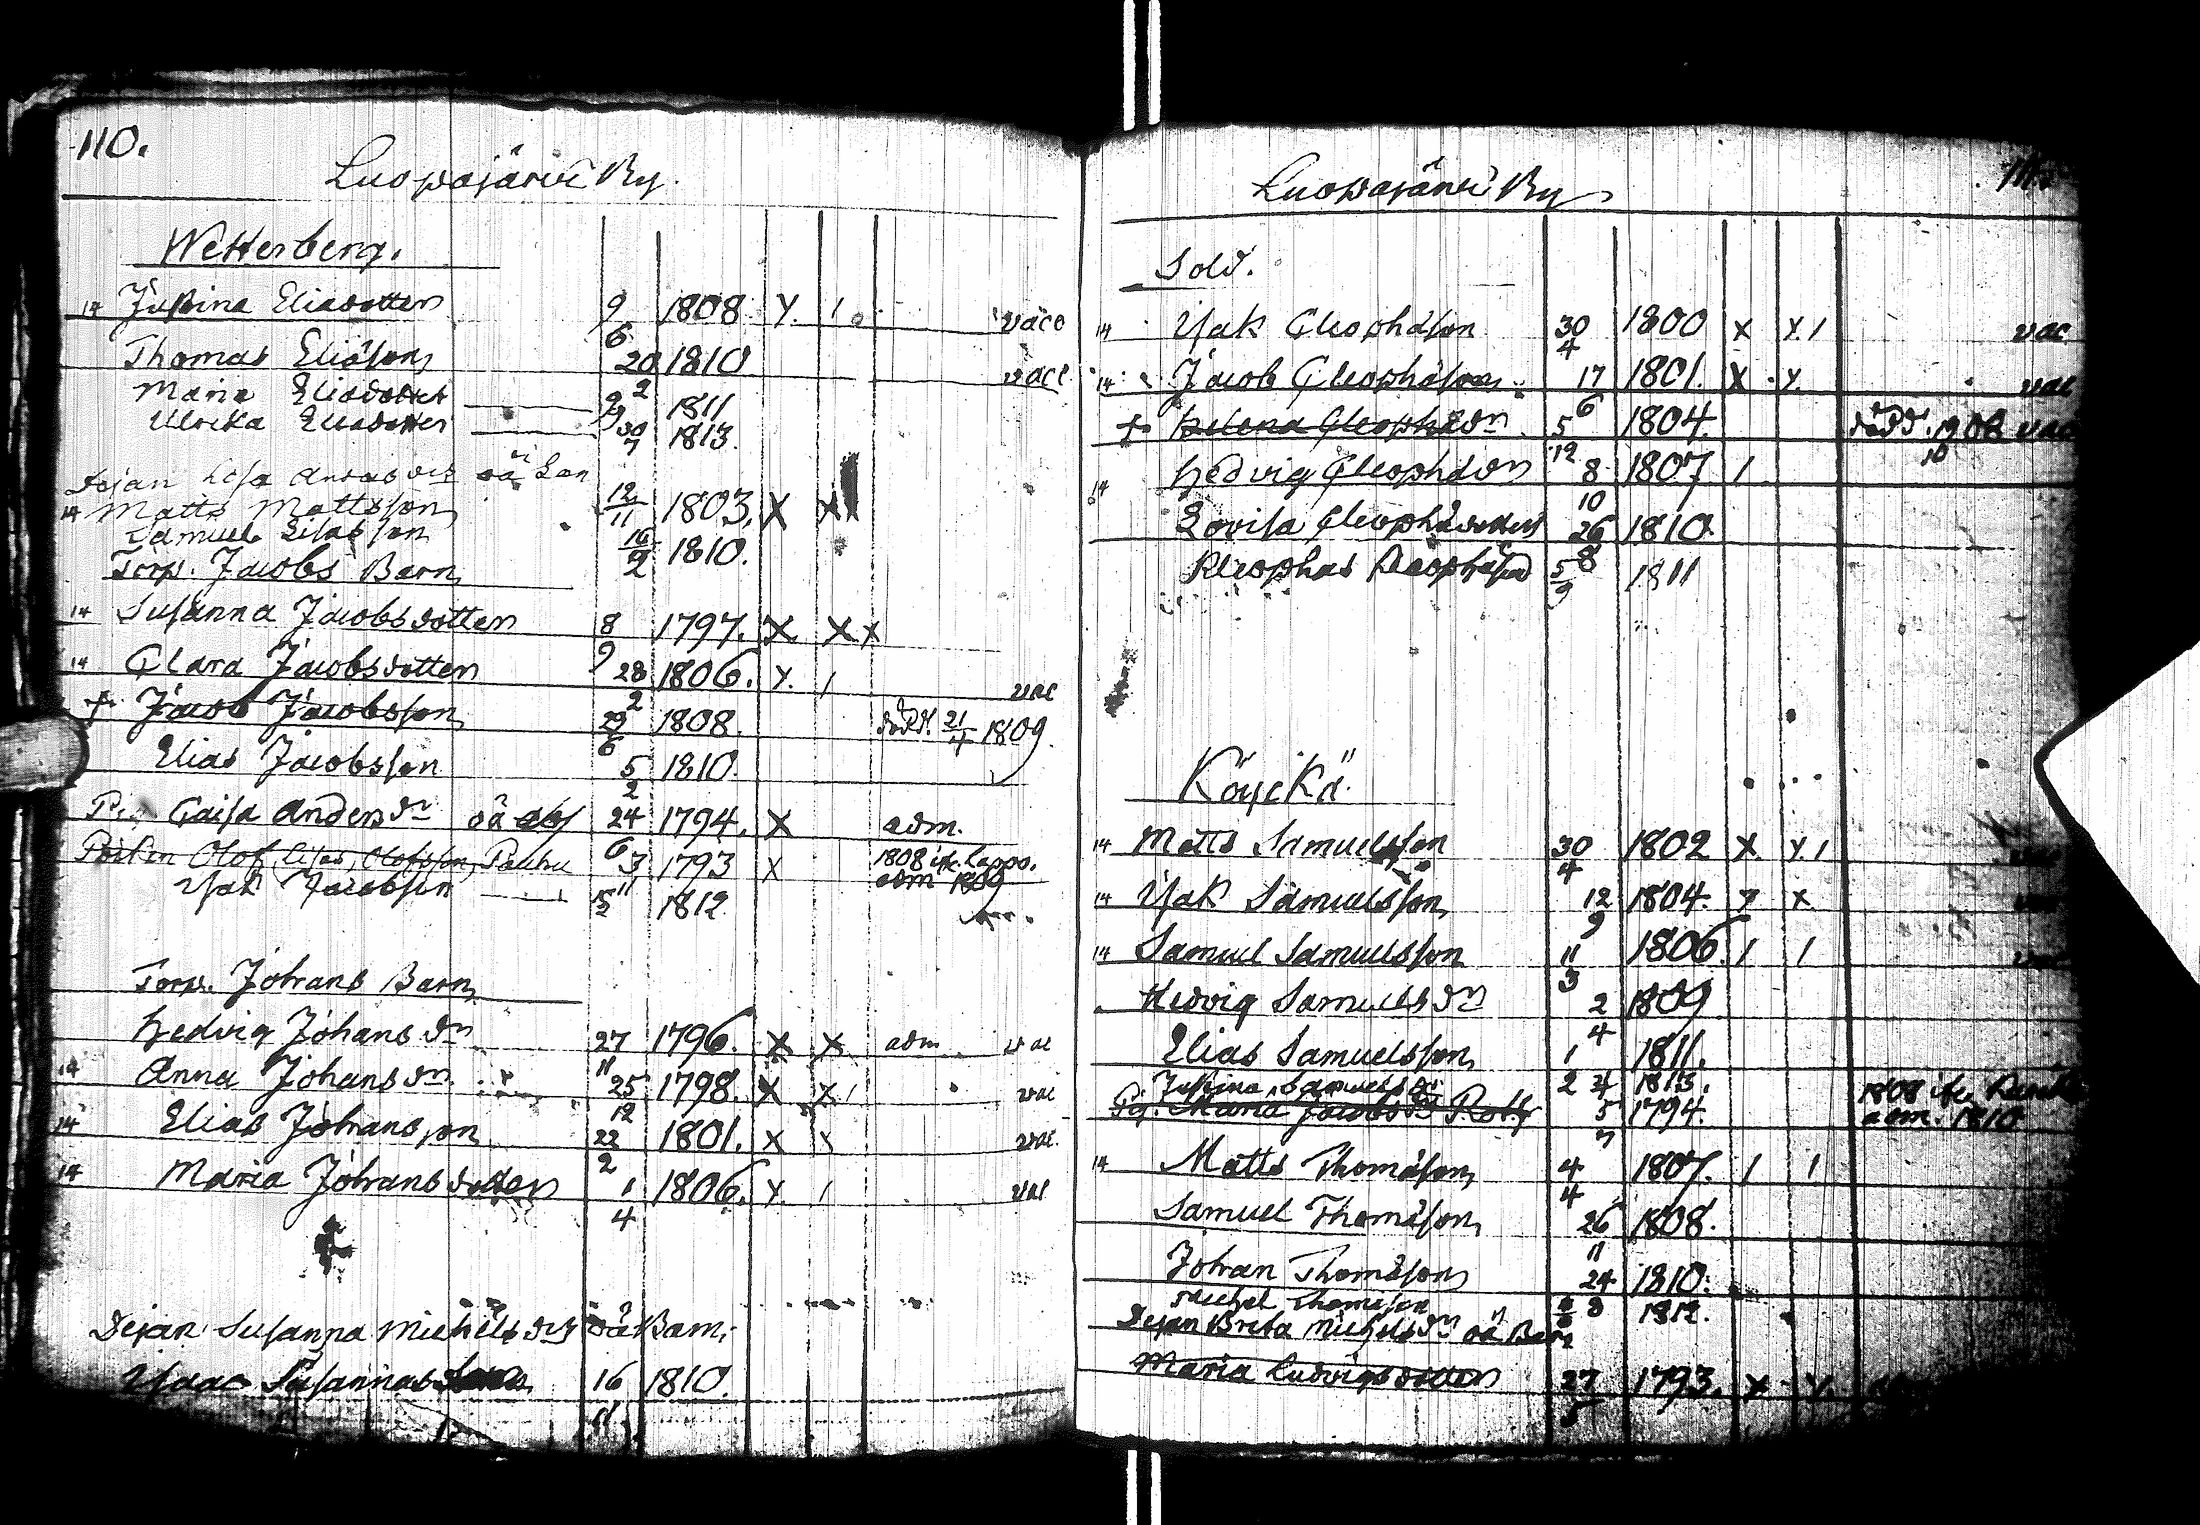 110.
Luopajärvi By.
Wetterberg.
14 Justina Eliadotter 9/6 1808 X. 1 vacc
Thomas Eliason 20/2 1810 vacc
Maria Eliadotter 9/9 1811
Ulrika Eliadotter 30/7 1813.
Dejan Lisa Andersdr oä Son
14 Matts Mattsson 12/11 1803. X X
Samuel Lisasson 16/2 1810.
Torp. Jacobs Barn
14 Susanna Jacobsdotter 8/9 1797. X X X
14 Clara Jacobsdotter 28/2 1806. X. 1 vac
+ Jacob Jacobsson 29/6 1808. död. 21/4 1809.
Elias Jacobsson 5/2 1810.
Caisa Andersdr oä 24/6 1794. X adm.
Olof Olofsson 3/11 1793 X 1808 ifr. Lappo.
adm 1809
Isak Jacobsson 5/2 1812
Torp. Johans Barn
Hedvig Johansdr 27/11 1796. X X adm vac
14 Anna Johansdr 25/12 1798. X X 1 vac
14 Elias Johansson 22/2 1801. X X vac.
14 Maria Johansdotter 1/4 1806. X. 1 vac
Dejan Susanna Michelsdr oä Barn
Isaac Susannas 16/11 1810.
Luopajärvi By
Sold.
14 Isak Cleophason 30/4 1800 X X 1 vac
14 Jacob Cleophason 17/6 1801. X X. vac
+ Helena Cleophadr 5/12 1804. död. 1808 vac
14 Hedvig Cleophadr 8/10 1807. 1
Lovisa Cleophadotter 26/8 1810.
Kleophas Cleophason 5/9 1811
Köyckä.
14 Matts Samuelsson 30/4 1802 X X 1
14 Isak Samuelsson 12/9 1804. X X.
14 Samuel Samuelsson 11/3 1806. 1 1
Hedvig Samuelsdr 2/4 1809
Elias Samuelsson 1 1811.
Justina Samuelsdr 1813.
Pig. Maria Jacobsdr 5/7 1794. 1808 ifr.
adm. 1810
14 Matts Thomason 4/4 1807. 1 1
Samuel Thomason 26/11 1808.
Johan Thomason 24 1810.
Michel Thomason 1812.
Dejan Brita Michelsdr oä Barn
Maria Ludvigsdotter 27/5 1793. X X.